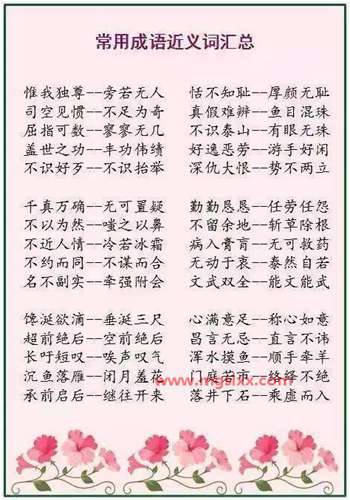 常用成语近义词汇总
惟我独尊--旁若无人 恬不知耻--厚颜无耻
司空见惯--不足为奇 真假难辨--鱼目混珠
屈指可数--寥寥无几 不识泰山--有眼无珠
盖世之功--丰功伟绩 好逸恶劳--游手好闲
不识好歹--不识抬举 深仇大恨--势不两立
千真万确--无可置疑 勤勤恳恳--任劳任怨
不以为然--嗤之以鼻 不留余地--斩草除根
不近人情--冷若冰霜 病入膏肓--无可救药
不约而同--不谋而合 无动于衷--泰然自若
名不副实--牵强附会 文武双全--能文能武
馋涎欲滴--垂涎三尺 心满意足--称心如意
超前绝后--空前绝后 昌言无忌--直言不讳
长吁短叹--唉声叹气 浑水摸鱼--顺手牵羊
沉鱼落雁--闭月羞花 门庭若市--络绎不绝
www.mgslxx.com
承前启后--继往开来 落井下石--乘虚而入